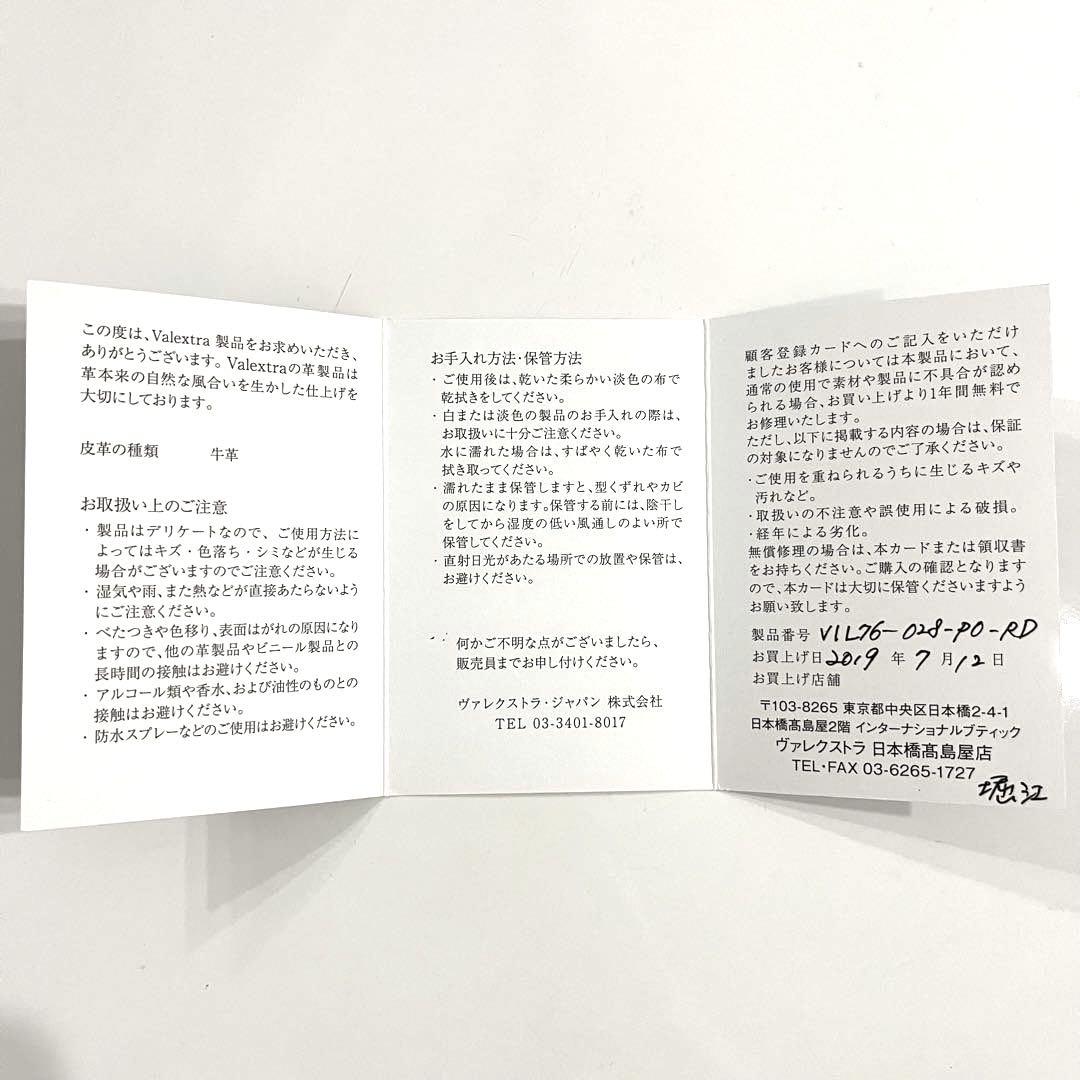 この度は、Valextra 製品をお求めいただき、
ありがとうございます。Valextraの革製品は
革本来の自然な風合いを生かした仕上げを
大切にしております。
皮革の種類 牛革
お取扱い上のご注意
・製品はデリケートなので、ご使用方法に
よってはキズ・色落ち・シミなどが生じる
場合がございますのでご注意ください。
・湿気や雨、また熱などが直接あたらないよう
にご注意ください。
・べたつきや色移り、表面はがれの原因になり
ますので、他の革製品やビニール製品との
長時間の接触はお避けください。
・アルコール類や香水、および油性のものとの
接触はお避けください。
・防水スプレーなどのご使用はお避けください。
お手入れ方法・保管方法
・ご使用後は、乾いた柔らかい淡色の布で
乾拭きをしてください。
・白または淡色の製品のお手入れの際は、
お取扱いに十分ご注意ください。
水に濡れた場合は、すばやく乾いた布で
拭き取ってください。
・濡れたまま保管しますと、型くずれやカビ
の原因になります。保管する前には、陰干し
をしてから湿度の低い風通しのよい所で
保管してください。
・直射日光があたる場所での放置や保管は、
お避けください。
何かご不明な点がございましたら、
販売員までお申し付けください。
ヴァレクストラ・ジャパン 株式会社
TEL 03-3401-8017
顧客登録カードへのご記入をいただけ
ましたお客様については本製品において、
通常の使用で素材や製品に不具合が認め
られる場合、お買い上げより1年間無料で
お修理いたします。
ただし、以下に掲載する内容の場合は、保証
の対象になりませんのでご了承ください。
・ご使用を重ねられるうちに生じるキズや
汚れなど。
・取扱いの不注意や誤使用による破損。
・経年による劣化。
無償修理の場合は、本カードまたは領収書
をお持ちください。ご購入の確認となります
ので、本カードは大切に保管くださいますよう
お願い致します。
製品番号 V1L76-028-PO-RD
お買上げ日 2019 年 7 月 12 日
お買上げ店舗
〒103-8265 東京都中央区日本橋2-4-1
日本橋髙島屋2階 インターナショナルブティック
ヴァレクストラ 日本橋髙島屋店
TEL・FAX 03-6265-1727
堀江